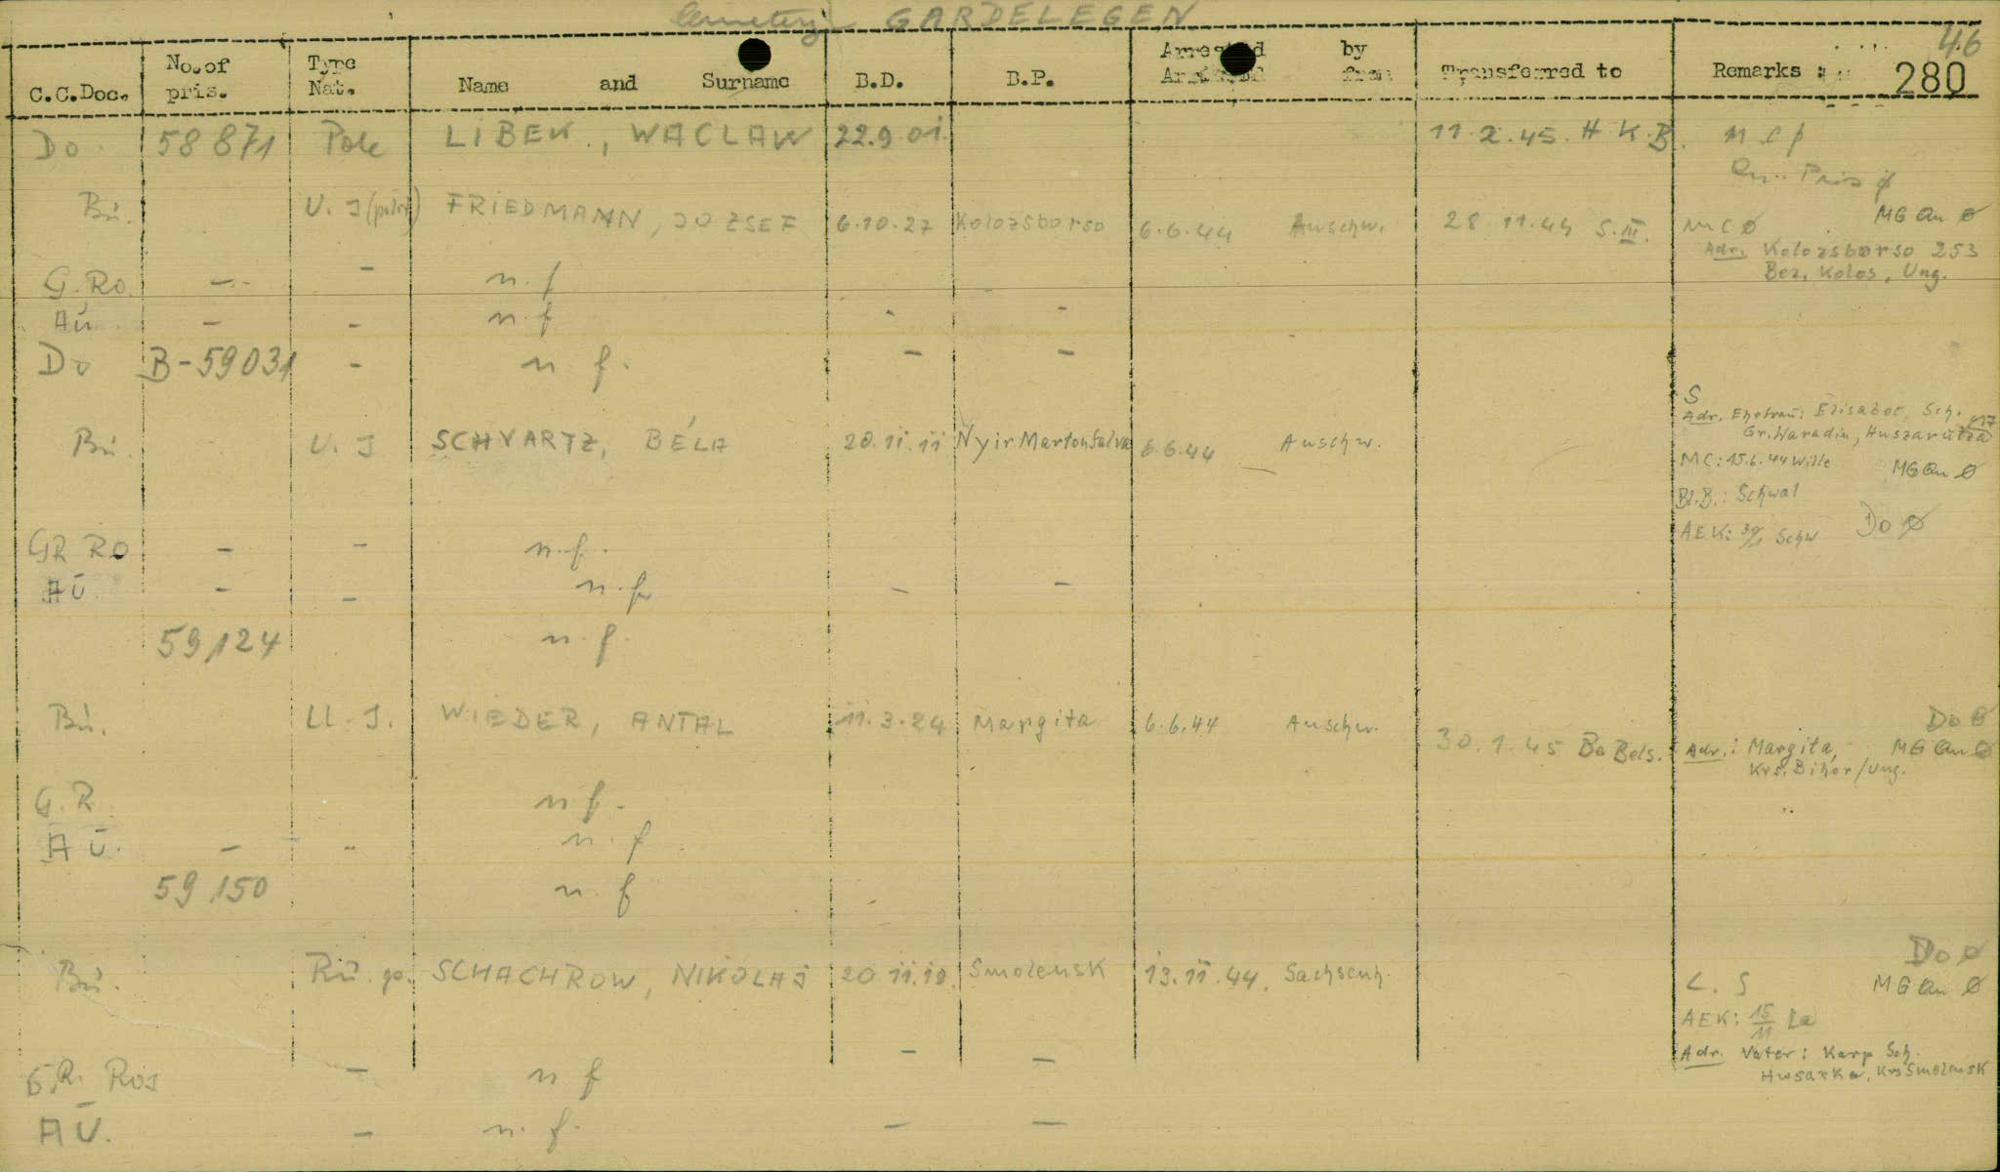 Cemetery GARDELEGEN
46
280
C.C.Doc. No. of pris. Type Nat. Name and Surname B.D. B.P. Arrested by from Transferred to Remarks :
Do. 58871 Pole LIBEK, WACLAW 22.9.01. 11.2.45. H K.B.
Bu. U. J FRIEDMANN, JOZSEF 6.10.27 Kolozsborso 6.6.44 Auschw. 28.11.44 S.III. MC Ø MG an Ø
Adr. Kolozsborso 253
Bez. Kolos, Ung.
G.Ro. — - n.f
Aú — - n.f - -
Do B-59031 - n f. - -
S
Adr. Ehefrau: Elisabet Sch.
Gr. Waradin, Huszarutza 17
Bú. U. J SCHVARTZ, BÉLA 20.11.11 NyirMartonfalva 6.6.44 Auschw.
MC: 15.6.44 Wille MG an Ø
Bl.B.: Schwal
AEK: Schw Do Ø
GR RO - - n.f.
AU. - - n.f - -
59124 n.f.
Bu. U. J. WIEDER, ANTAL 11.3.24 Margita 6.6.44 Auschw. 30.1.45 Be Bels. Do Ø
Adr.: Margita, MG an Ø
Krs. Bihor/Ung.
G.R n f.
AU. - - n.f
59150 n.f
Do Ø
Bu. Ru. po. SCHACHROW, NIKOLAJ 20 11.19. Smolensk 13.11.44. Sachsenh. L. S MG an Ø
AEK: 15/11 La
Adr. Vater: Karp Sch.
Husarka, Krs Smolensk
GR. Ros - n f - -
AU. - n. f. - -